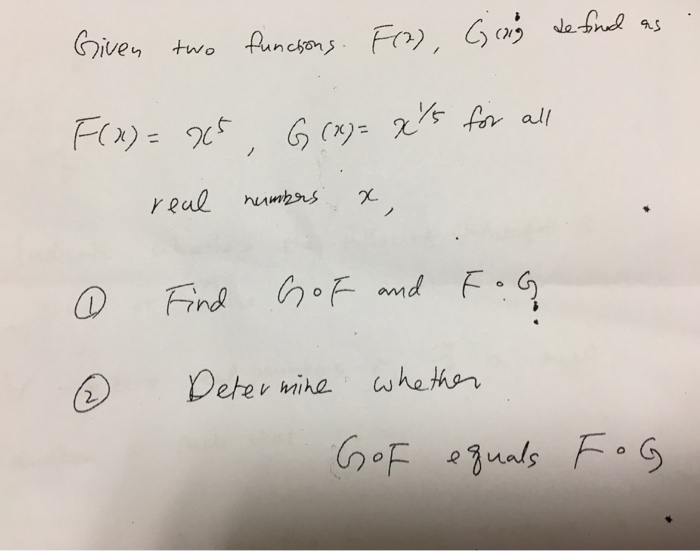 Given two functions. F(x), G(x) defined as
F(x) = x⁵, G(x) = x^1/5 for all
real numbers x,
① Find G∘F and F∘G
② Determine whether
G∘F equals F∘G